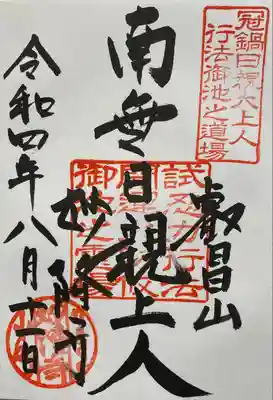 冠鍋日親大上人
行法御池之道場
叡昌山
南無日親上人
妙隆寺
令和四年八月十一日
試忍力行法
御